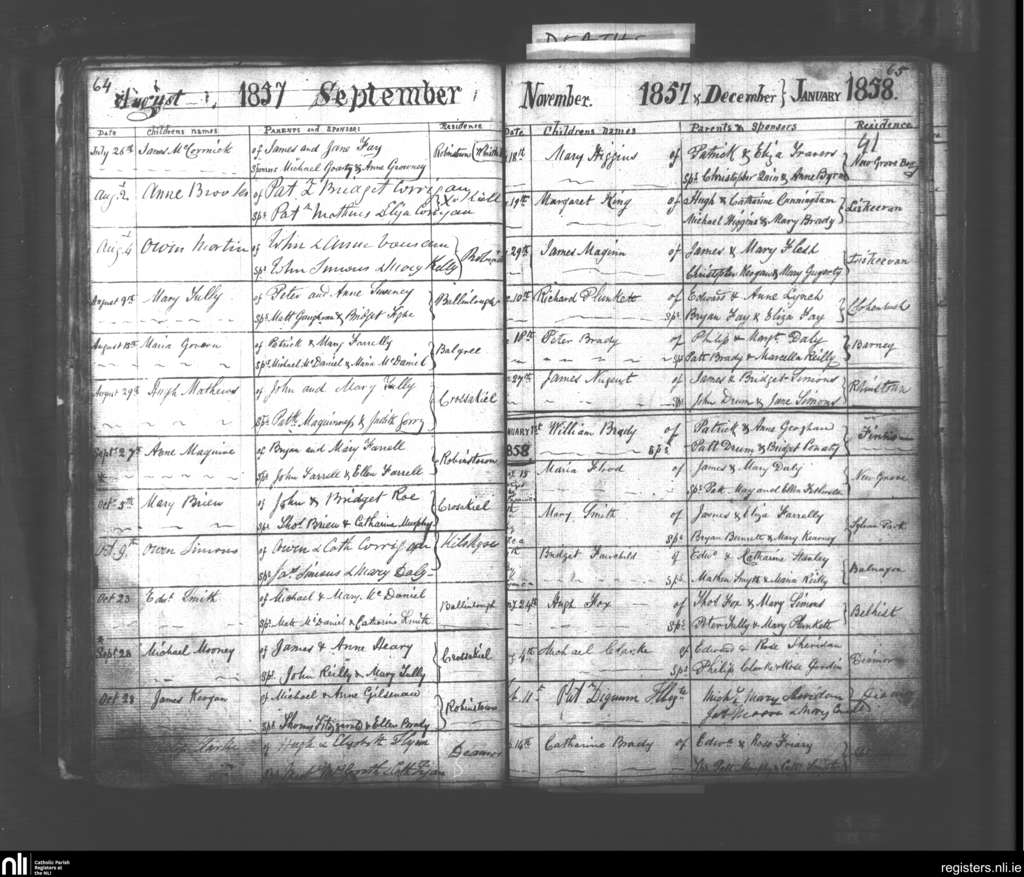 DEATHS
64
August 1857 September
Date Childrens names Parents and Sponsors Residence
July 26th James McCormick of James and Jane Fay
Sponsors Michael Geraty & Anne Growney
Robinstown
Aug. 2 Anne Brooks of Pat & Bridget Corrigan
Sps Pat Mathews Eliza Corrigan
Aug. 4 Owen Martin of John & Anne
Sps John Simons & Mary Kelly
August 9th Mary Tully of Peter and Anne Sweney
Sps Matt Gaughran & Bridget
Ballinlough
August 15th Maria of Patrick & Mary Farrelly
Sps Michael McDaniel & Maria McDaniel
Balgree
August 29th Hugh Mathews of John and Mary Tully
Sps Patk Maguiness & Judith
Crosskiel
Sept 27th Anne Maguire of Bryan and Mary Farrell
Sps John Farrell & Ellen Farrell
Robinstown
Oct 5th Mary Brien of John & Bridget Roe
Sps Thos Brien & Catharine Murphy
Crosskiel
Oct 9th Owen Simons of Owen & Cath Corrigan
Sps Jas Simons & Mary Daly
Kilskyre
Oct 23 Edwd Smith of Michael & Mary McDaniel
Sps Matt McDaniel & Catharine Smith
Ballinlough
Sept 28 Michael Mooney of James & Anne Heary
Sps John Reilly & Mary Tully
Crosskiel
Oct 28 James Keogan of Michael & Anne Gilsenan
Sps Thomas Fitzgerald & Ellen Brady
Robinstown
of Hugh & Elizabeth Flynn
Diamor
65
November. 1857 & December } January 1858.
Date Childrens names Parents & Sponsors Residence
18th Mary Higgins of Patrick & Eliza Travers
Sps Christopher Quin & Anne Byrne
New Grove
19th Margaret King of Hugh & Catharine Cunningham
Michael Higgins & Mary Brady
Liskeevan
29th James Maginn of James & Mary Flesh
Christopher Keogan & Mary Gugerty
Liskeevan
10th Richard Plunkett of Edward & Anne Lynch
Sps Bryan Fay & Eliza Fay
18th Peter Brady of Philip & Margt Daly
Sps Patt Brady & Marcella Reilly
Barney
27th James Nugent of James & Bridget Simons
Sps John Drum & Jane Simons
January 1st William Brady of Patrick & Anne Geoghan
1858 Sps Patt Drum & Bridget
15 Maria Flood of James & Mary Daly
Sps Patt May and Ellen
New Grove
Mary Smith of James & Eliza Farrelly
Sps Bryan Bennett & Mary Kearney
Sylvan Park
Bridget Fairchild of Edwd & Katharine Stanley
Sps Mathew Smyth & Maria Reilly
Balnagon
24th Hugh Fox of Thos Fox & Mary Simons
Sps Peter Tully & Mary Plunkett
Belhist
4th Michael Clarke of Edward & Rose Sheridan
Sps Philip Clarke & Rose
Diamor
11th Pat Dignum Michl Mary Sheridan
14th Catharine Brady of Edwd & Rose Friary
nli
Catholic Parish
Registers at
the NLI
registers.nli.ie